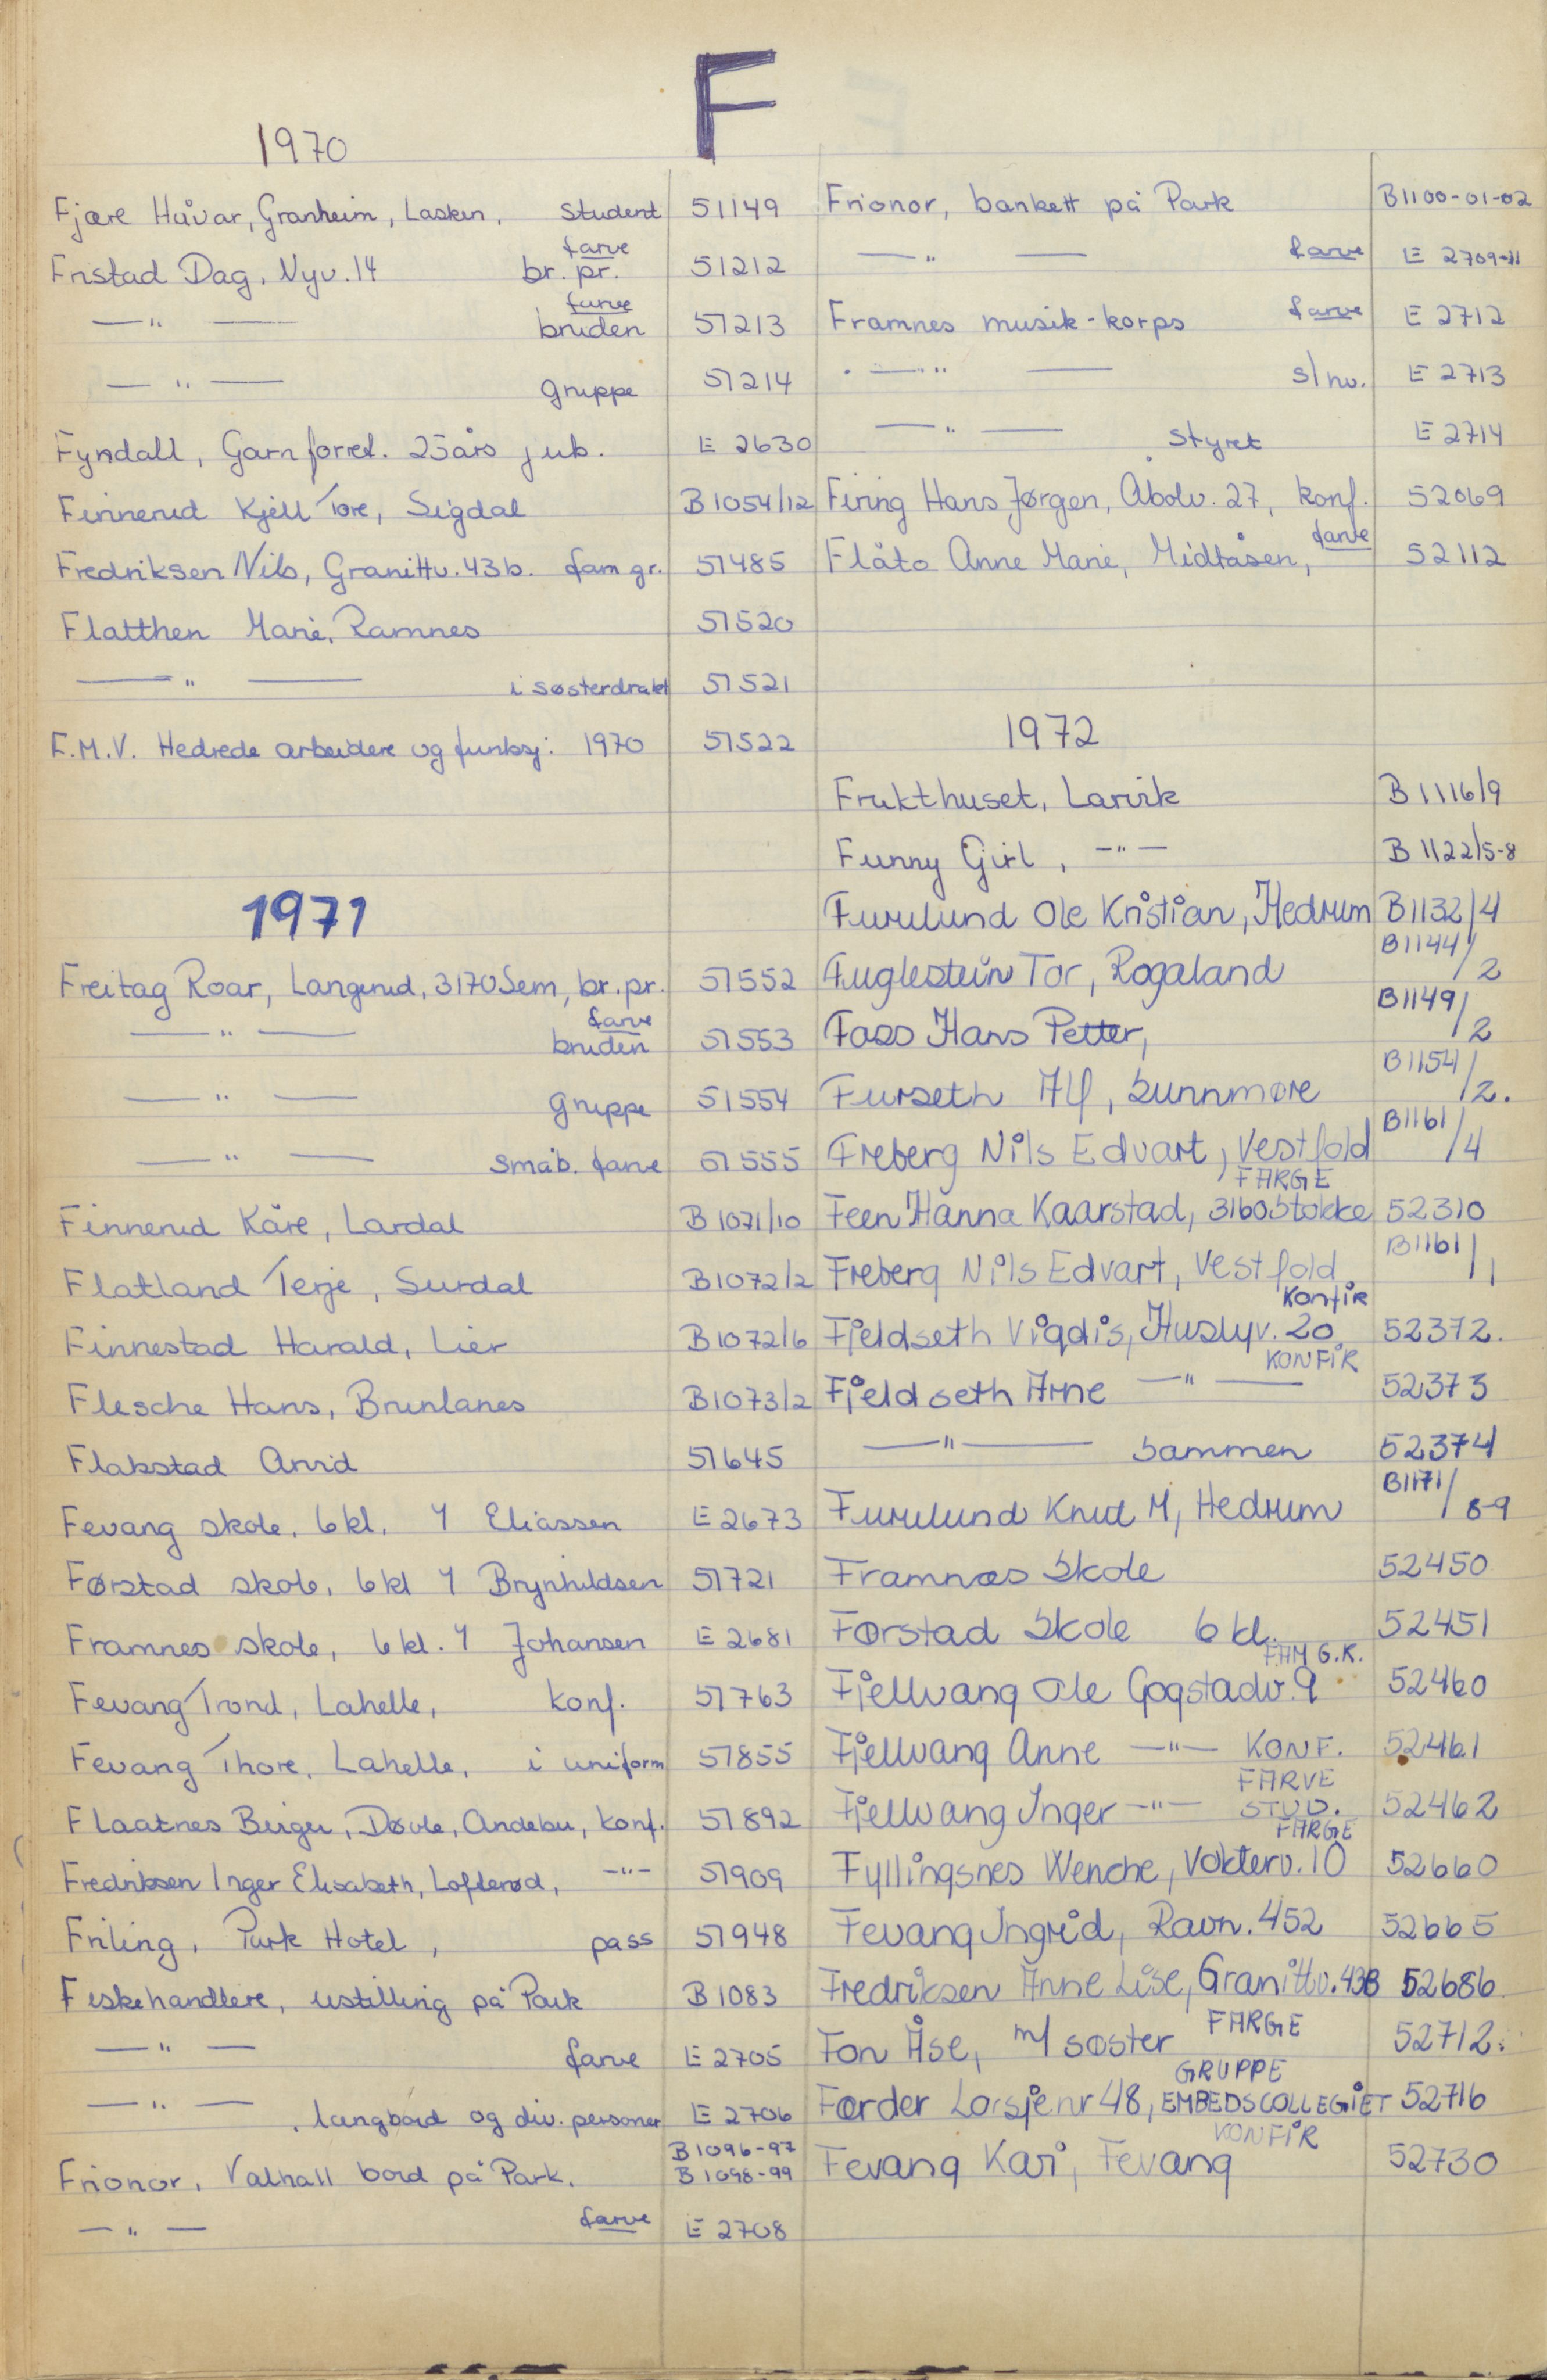 F
1970
Fjære Håvar, Granheim, Lasken, student 51149
Fristad Dag, Nyv. 14 br. pr. farve 51212
—"— bruden farve 51213
—"— gruppe 51214
Fyndall, Garnforret. 25års jub. E 2630
Finnerud Kjell Tore, Sigdal B 1054/12
Fredriksen Nils, Granittv. 43b. fam gr. 51485
Flatthen Marie, Ramnes 51520
—"— i søsterdrakt 51521
F.M.V. Hedrede arbeidere og funksj: 1970 51522
1971
Freitag Roar, Langerud, 3170 Sem, br. pr. 51552
—"— bruden farve 51553
—"— gruppe 51554
—"— småb. farve 51555
Finnerud Kåre, Lardal B 1071/10
Flatland Terje, Surdal B 1072/2
Finnestad Harald, Lier B 1072/6
Flesche Hans, Brunlanes B 1073/2
Flakstad Arvid 51645
Fevang skole, 6 kl. Y Eliassen E 2673
Førstad skole, 6 kl Y Brynhildsen 51721
Framnes skole, 6 kl. Y Johansen E 2681
Fevang Trond, Lahelle, konf. 51763
Fevang Thore, Lahelle, i uniform 51855
Flaatnes Birger, Døvle, Andebu, konf. 51892
Fredriksen Inger Elisabeth, Lofterød, —"— 51909
Friling, Park Hotel, pass 51948
Fiskehandlere, ustilling på Park B 1083
—"— farve E 2705
—"—, langbord og div. personer E 2706
Frionor, Valhall bord på Park. B 1096-97 B 1098-99
—"— farve E 2708
Frionor, bankett på Park B 1100-01-02
—"— farve E 2709-11
Framnes musik-korps farve E 2712
—"— s/hv. E 2713
—"— styret E 2714
Firing Hans Jørgen, Åbolv. 27, konf. 52069
Flåto Anne Marie, Midtåsen, farve 52112
1972
Frukthuset, Larvik B 1116/9
Funny Girl, —"— B 1122/5-8
Furulund Ole Kristian, Hedrum B1132/4
Fuglestein Tor, Rogaland B1144/2
Foss Hans Petter, B1149/2
Furseth Alf, Sunnmøre B1154/2.
Freberg Nils Edvart, Vestfold B1161/4
Feen Hanna Kaarstad, 3160 Stokke FARGE 52310
Freberg Nils Edvart, Vestfold B1161/1
Fjeldseth Vigdis, Huslyv. 20 KONFIR 52372.
Fjeldseth Arne —"— KONFIR 52373
—"— Sammen 52374
Furulund Knut M, Hedrum B1171/8-9
Framnæs Skole 52450
Førstad Skole 6 kl. 52451
Fjellvang Ole Gogstadv. 9 FAM G.K. 52460
Fjellvang Anne —"— KONF. 52461
Fjellvang Inger —"— FARVE STUD. 52462
Fyllingsnes Wenche, Vokterv. 10 FARGE 52660
Fevang Ingrid, Ravn. 452 52665
Fredriksen Anne Lise, Granittv. 43B 52686
Fon Åse, m/ søster FARGE 52712.
Færder Losje nr 48, GRUPPE EMBEDSCOLLEGIET 52716
Fevang Kari, Fevang KONFIR 52730